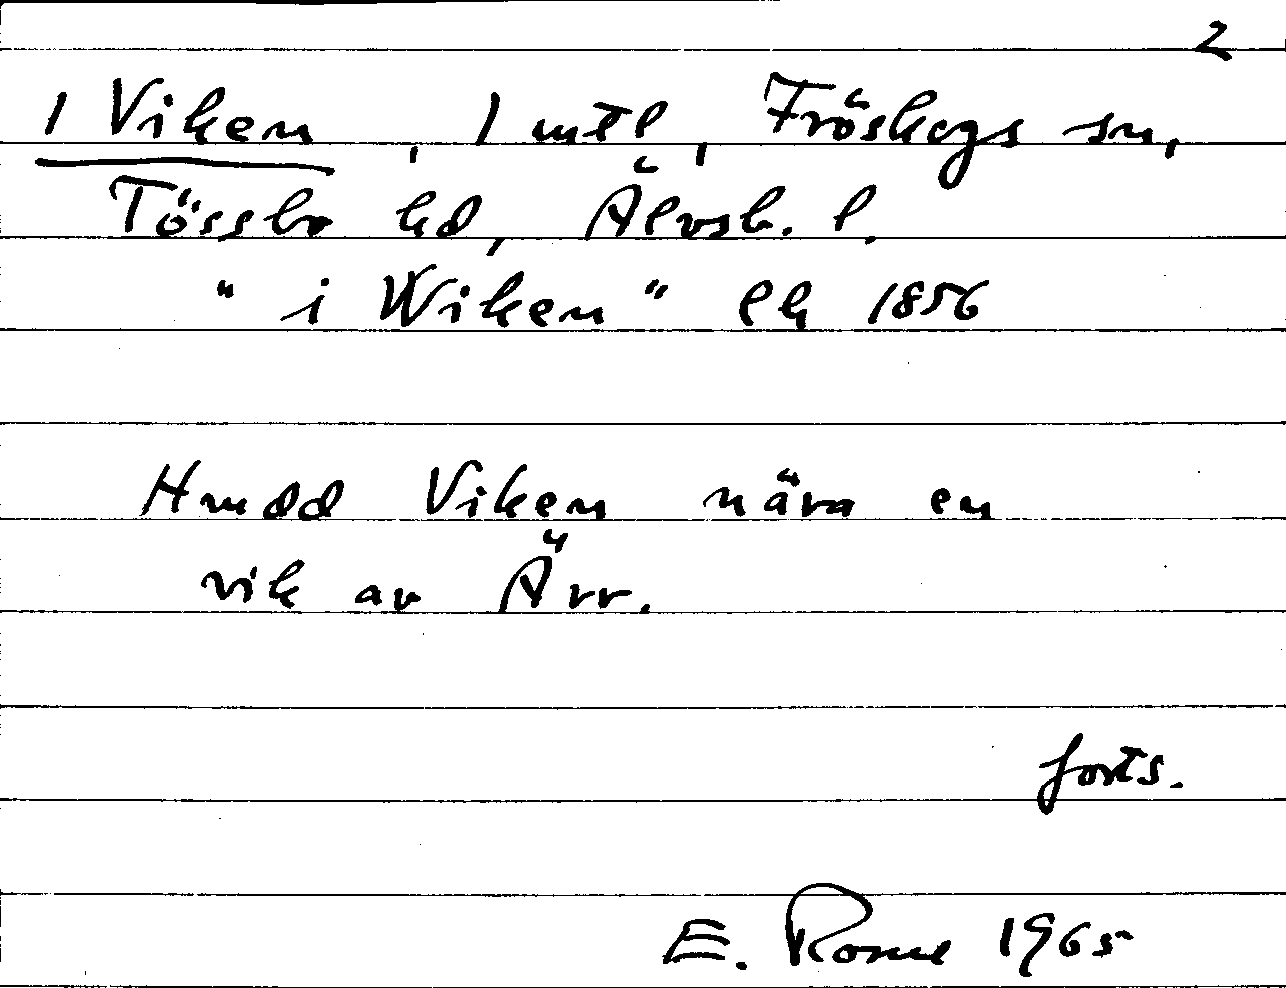 2
1 Viken, 1 mtl, Fröskogs sn,
Tössbo hd, Älvsb. l.
"i Wiken" ek 1856
Hmdd Viken nära en
vik av Ärr.
forts.
E. Rome 1965